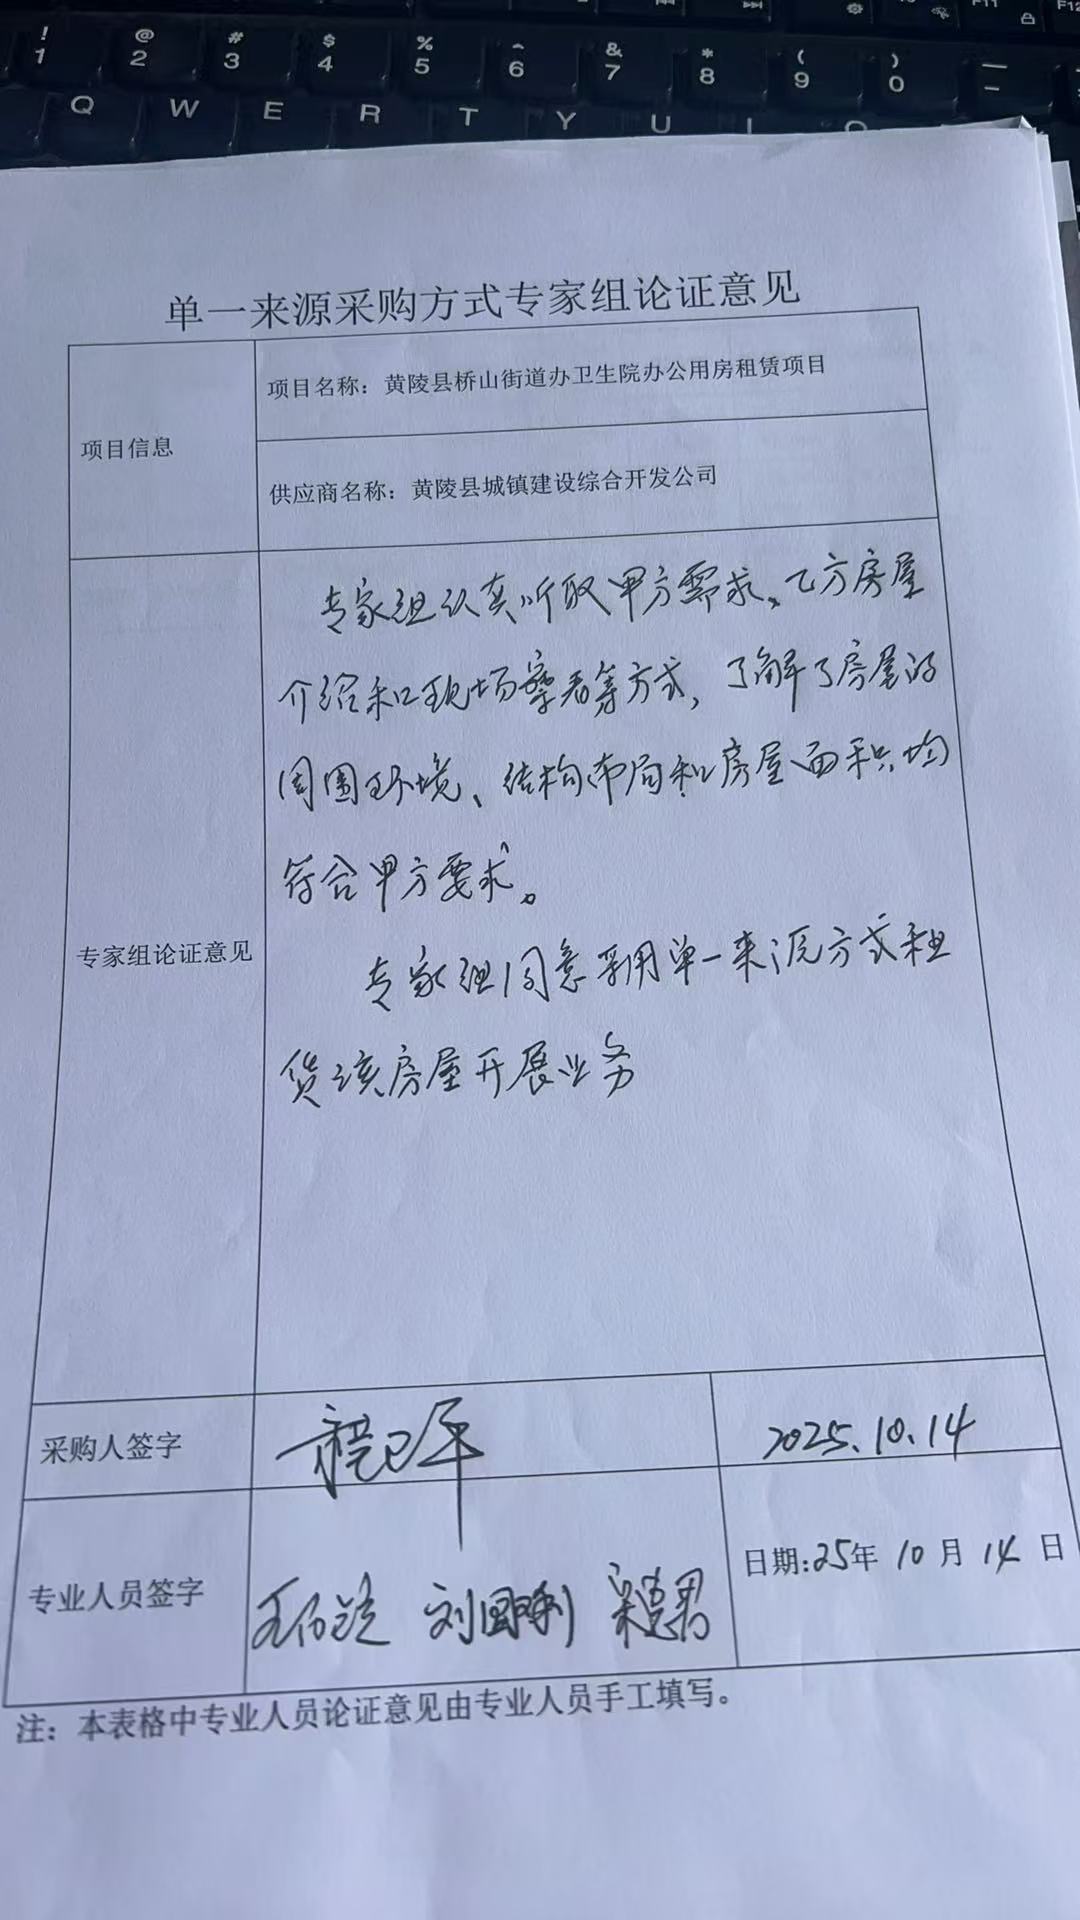 ! @ # $ % ^ & * ( ) —
1 2 3 4 5 6 7 8 9 0 –
F11 F12
Q W E R T Y U I O
单一来源采购方式专家组论证意见
项目信息
项目名称：黄陵县桥山街道办卫生院办公用房租赁项目
供应商名称：黄陵县城镇建设综合开发公司
专家组论证意见
专家组认真听取甲方需求、乙方房屋
介绍和现场察看等方式，了解了房屋的
周围环境、结构布局和房屋面积均
符合甲方要求。
专家组同意采用单一来源方式租
赁该房屋开展业务
采购人签字
2025.10.14
专业人员签字
刘国利
日期：25年 10 月 14 日
注：本表格中专业人员论证意见由专业人员手工填写。